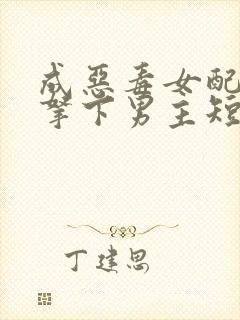 成恶毒女配
拏下男主短
丁建思